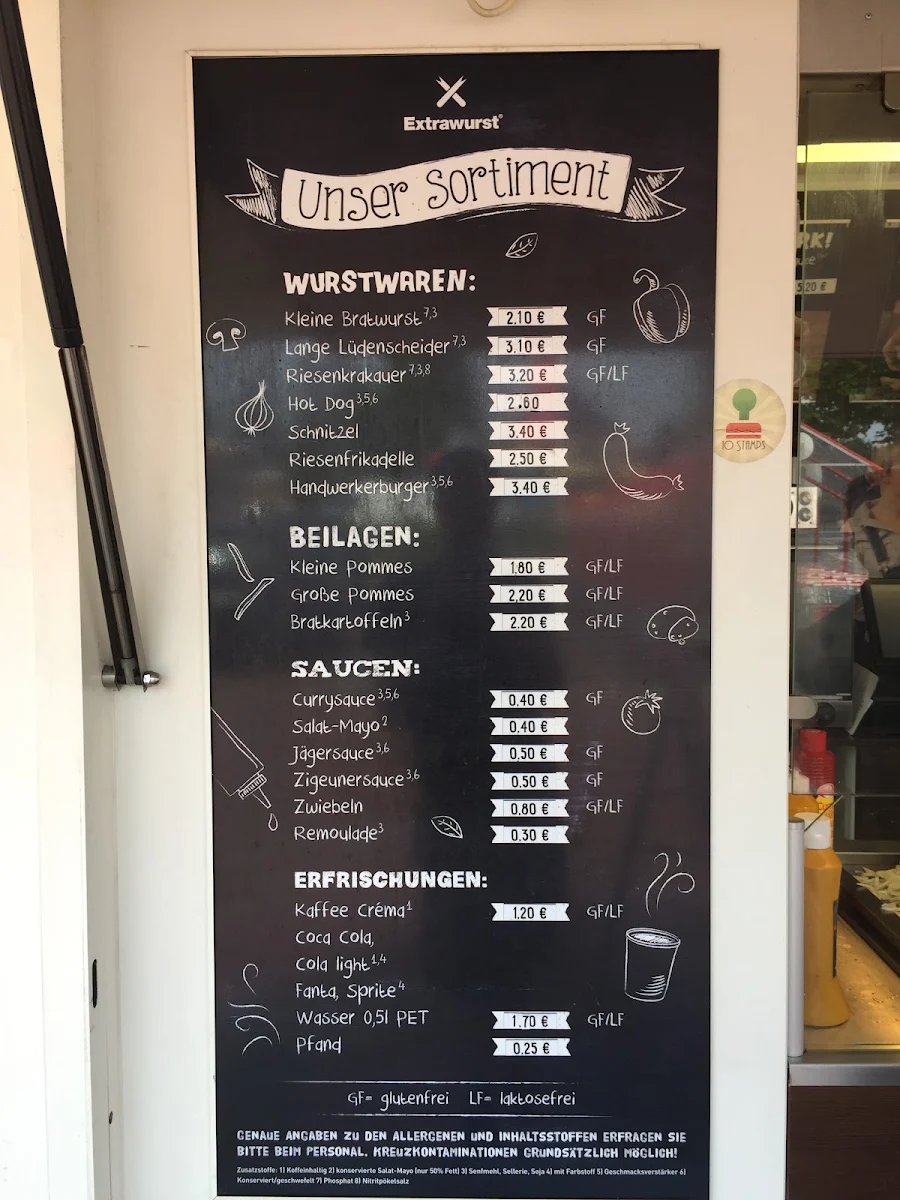 Extrawurst®
Unser Sortiment
WURSTWAREN:
Kleine Bratwurst 7,3 2.10 € GF
Lange Lüdenscheider 7,3 3.10 € GF
Riesenkrakauer 7,3,8 3,20 € GF/LF
Hot Dog 3,5,6 2.60
Schnitzel 3.40 €
Riesenfrikadelle 2.50 €
Handwerkerburger 3,5,6 3.40 €
BEILAGEN:
Kleine Pommes 1.80 € GF/LF
Große Pommes 2,20 € GF/LF
Bratkartoffeln 3 2.20 € GF/LF
SAUCEN:
Currysauce 3,5,6 0.40 € GF
Salat-Mayo 2 0.40 €
Jägersauce 3,6 0.50 € GF
Zigeunersauce 3,6 0.50 € GF
Zwiebeln 0.80 € GF/LF
Remoulade 3 0.30 €
ERFRISCHUNGEN:
Kaffee Créma 1 1.20 € GF/LF
Coca Cola,
Cola light 1,4
Fanta, Sprite 4
Wasser 0,5l PET 1.70 € GF/LF
Pfand 0.25 €
GF= glutenfrei LF= laktosefrei
GENAUE ANGABEN ZU DEN ALLERGENEN UND INHALTSSTOFFEN ERFRAGEN SIE
BITTE BEIM PERSONAL. KREUZKONTAMINATIONEN GRUNDSÄTZLICH MÖGLICH!
Zusatzstoffe: 1) Koffeinhaltig 2) konservierte Salat-Mayo (nur 50% Fett) 3) Senfmehl, Sellerie, Soja 4) mit Farbstoff 5) Geschmacksverstärker 6)
Konserviert/geschwefelt 7) Phosphat 8) Nitritpökelsalz
10 STAMPS
RK!
5,20 €